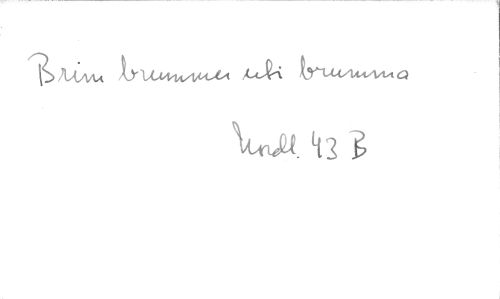 Brim brummer uti brumma
Nordl. 43 B